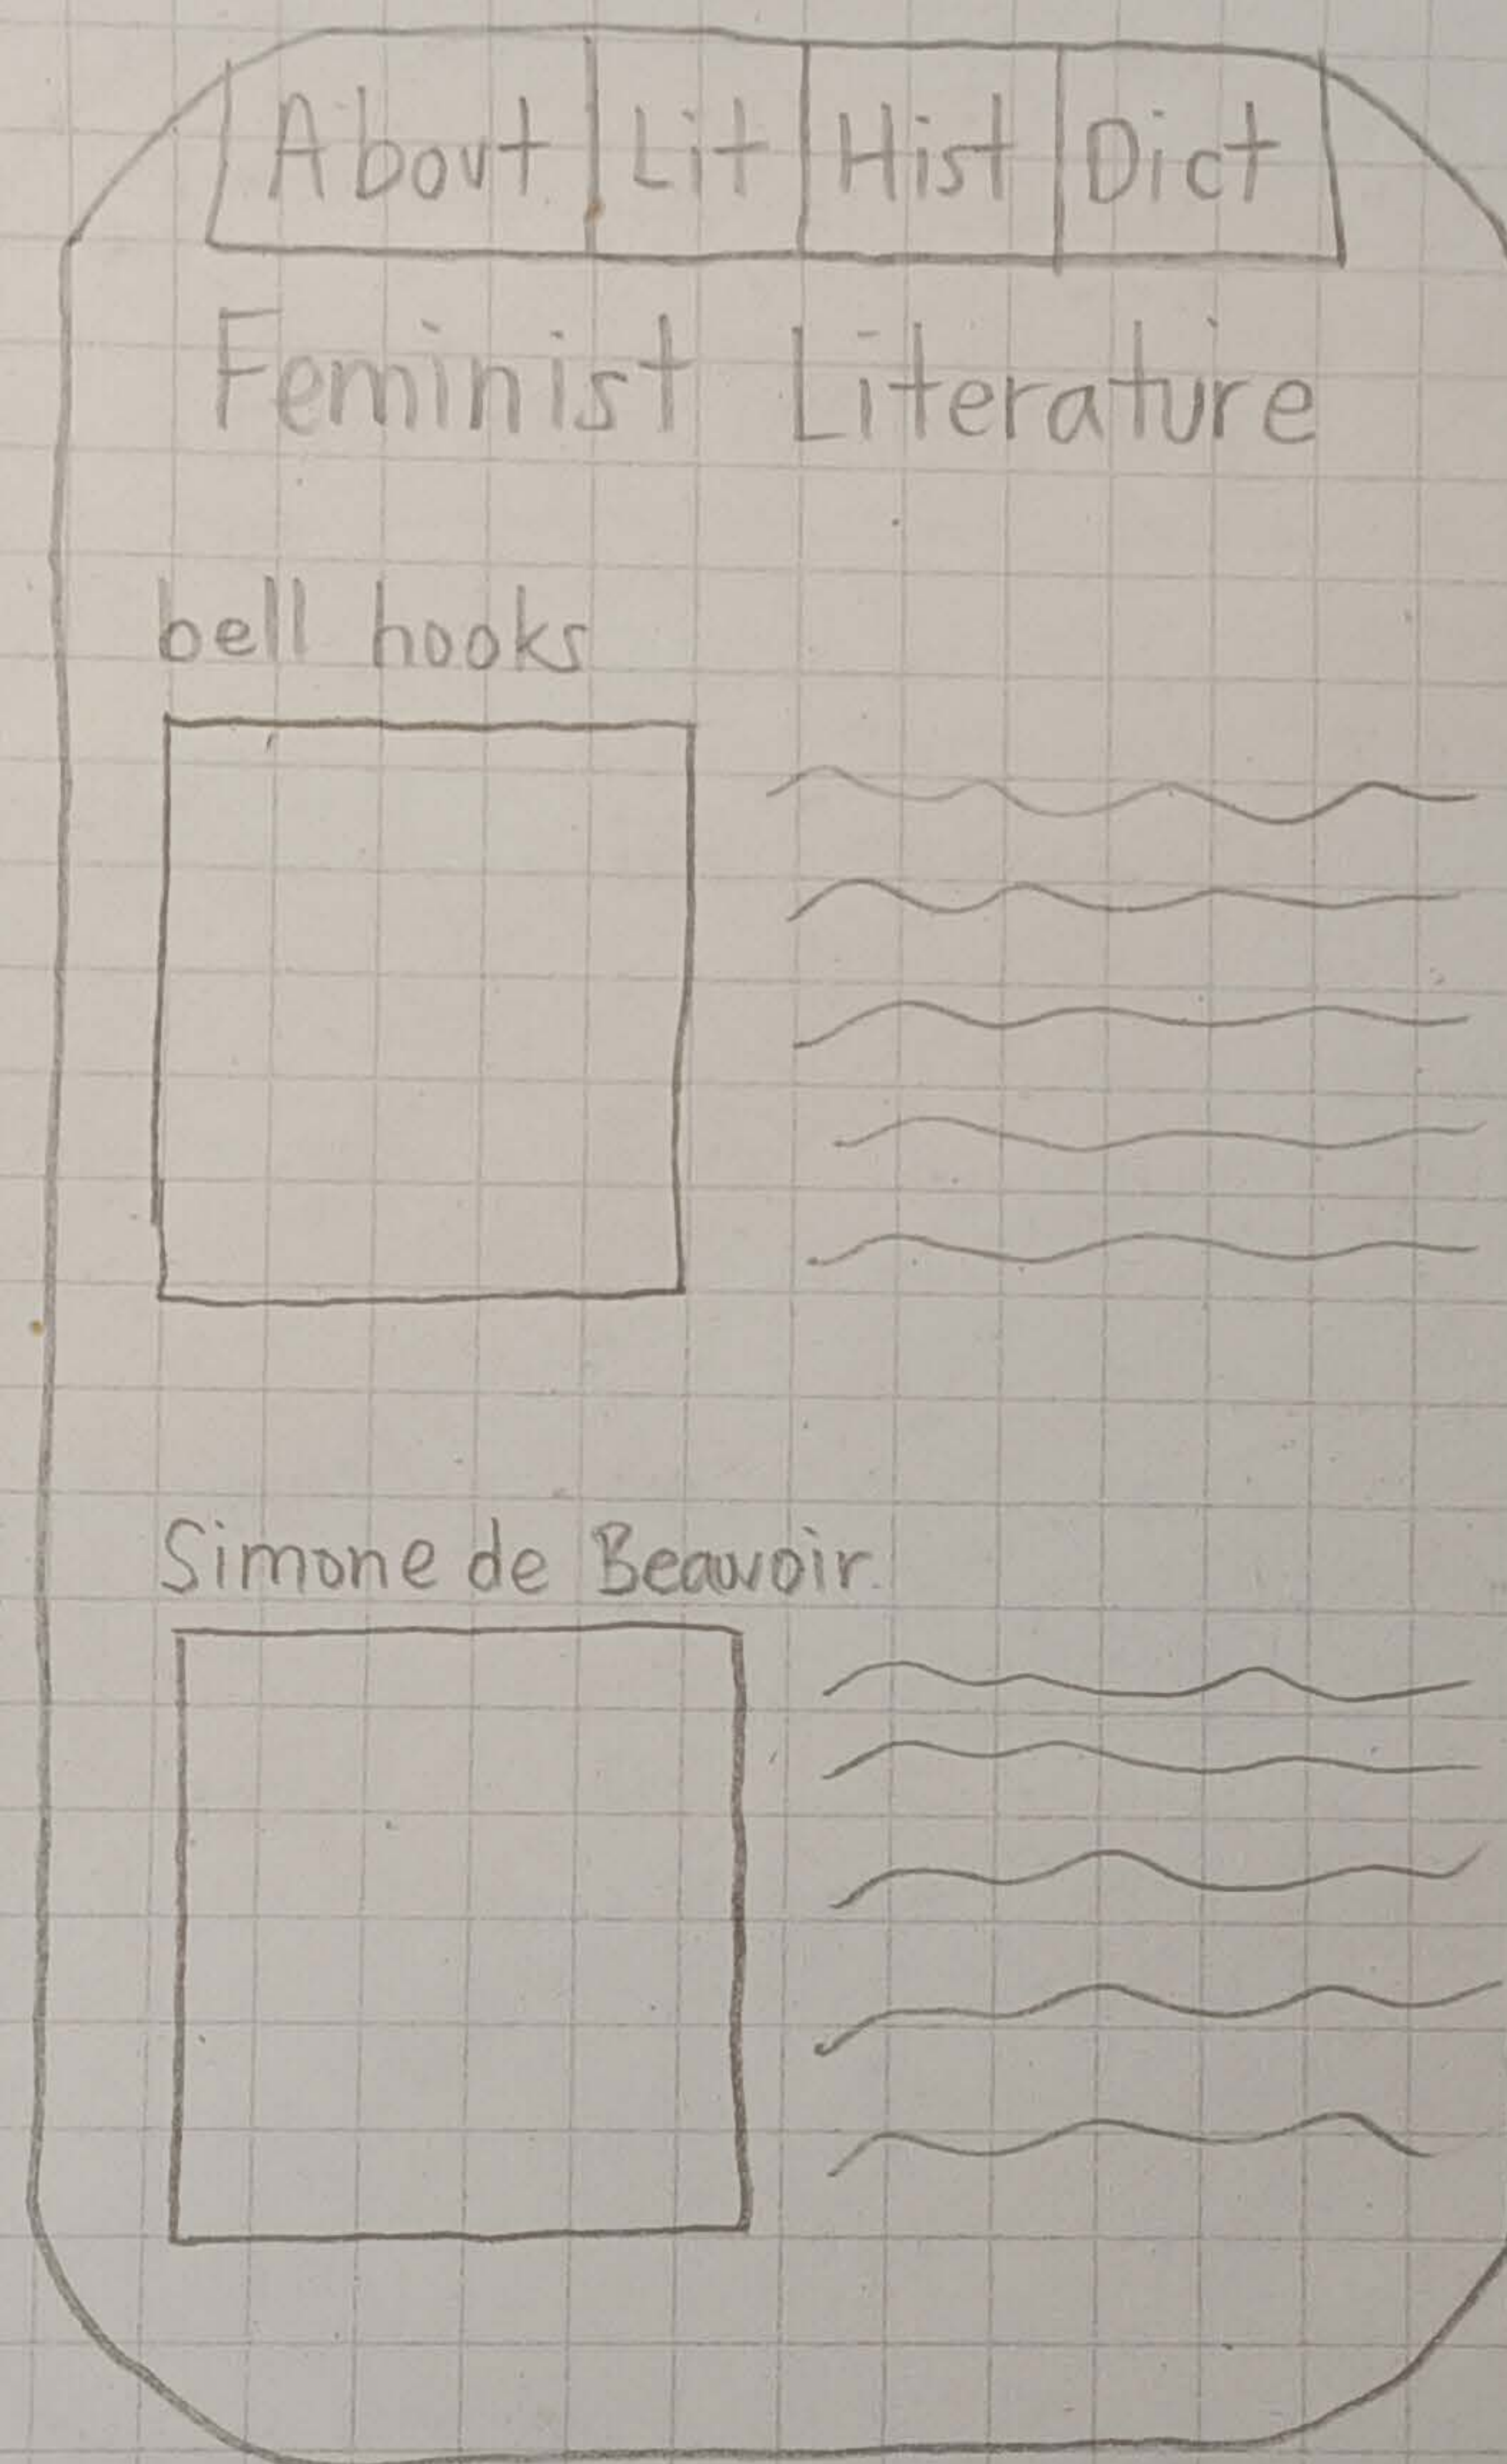 About Lit Hist Dict
Feminist Literature
bell hooks
Simone de Beauvoir